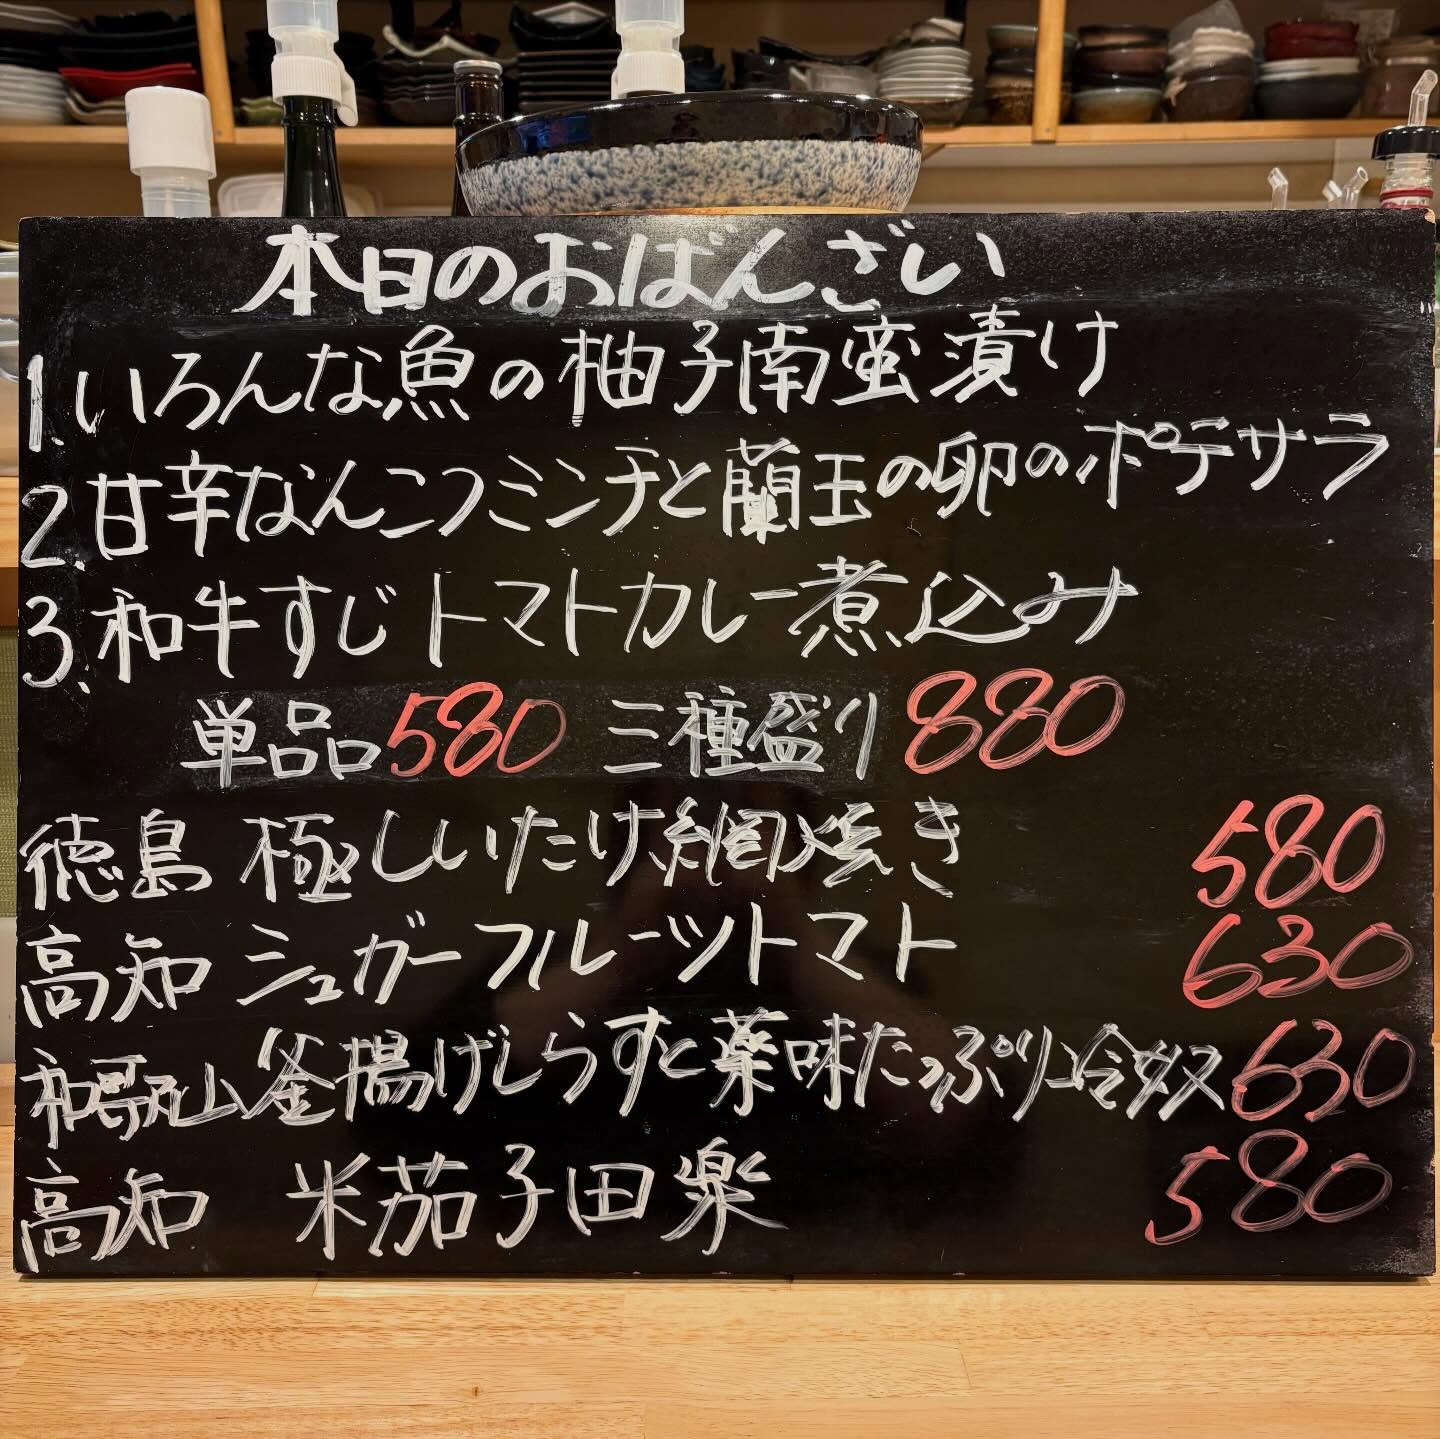 本日のおばんざい
1.いろんな魚の柚子南蛮漬け
2.甘辛なんこつミンチと蘭玉の卵のポテサラ
3.和牛すじトマトカレー煮込み
単品580 三種盛り880
徳島 極しいたけ網焼き 580
高知 シュガーフルーツトマト 630
和歌山 釜揚げしらすと薬味たっぷり冷奴 630
高知 米茄子田楽 580